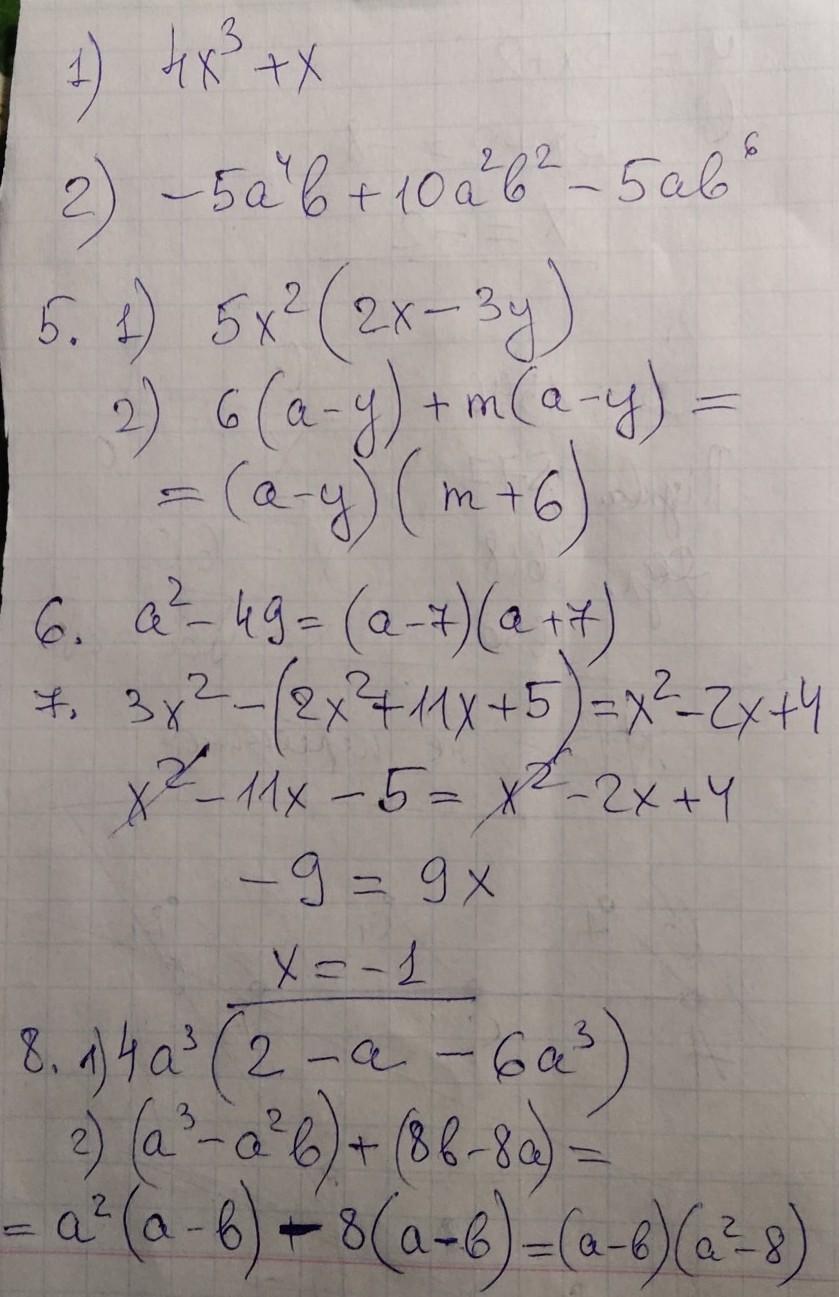 1) 4x³ + x
2) -5a⁴b + 10a²b² - 5ab⁶
5. 1) 5x²(2x - 3y)
2) 6(a-y) + m(a-y) =
= (a-y)(m+6)
6. a² - 49 = (a-7)(a+7)
7. 3x² - (2x² + 11x + 5) = x² - 2x + 4
x² - 11x - 5 = x² - 2x + 4
-9 = 9x
x = -1
8. 1) 4a³(2 - a - 6a³)
2) (a³ - a²b) + (8b - 8a) =
= a²(a - b) - 8(a - b) = (a-b)(a² - 8)